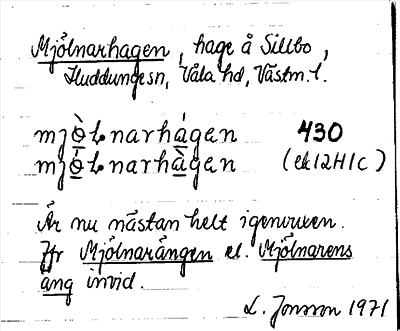 Mjölnarhagen, hage å Sillbo,
Huddunge sn, Våla hd, Västm. l.
mjò̱l.narhá̱gen 430
mjó̱l.narhà̱gen (ek 12H1c)
Är nu nästan helt igenvuxen.
Jfr Mjölnarängen el. Mjölnarens
äng invid.
L. Jonsson 1971